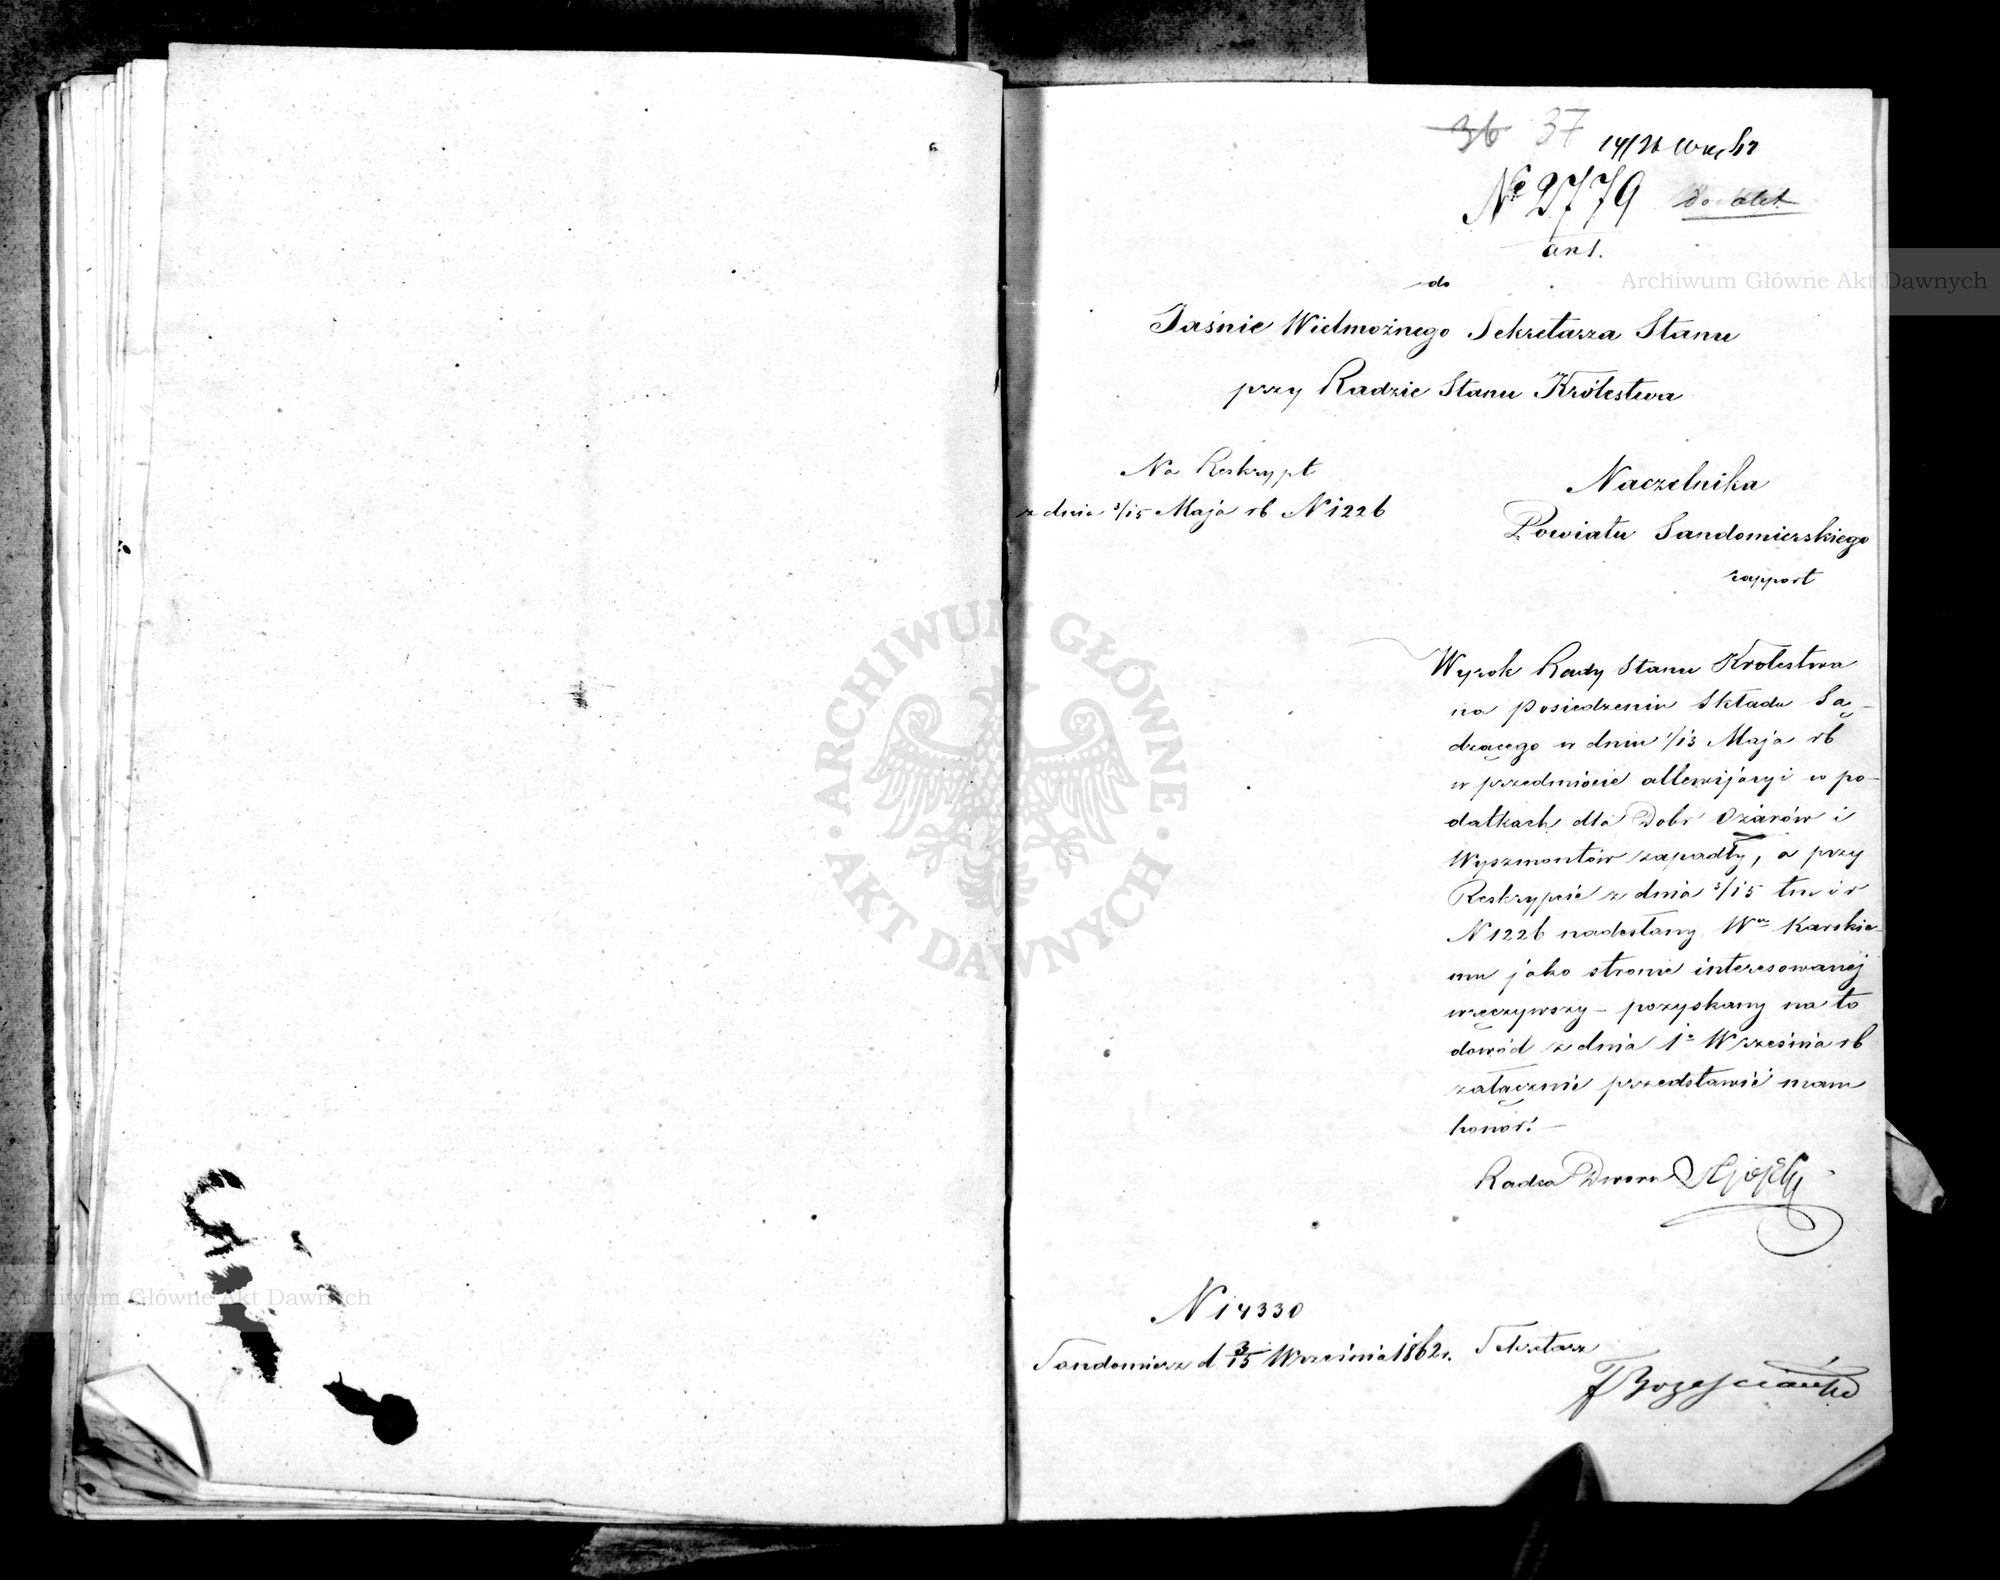 36 37
14/26
№ 2779
an 1.
do
Jaśnie Wielmożnego Sekretarza Stanu
przy Radzie Stanu Królestwa
Na Reskrypt
z dnia 3/15 Maja rb N 1226
Naczelnika
Powiatu Sandomierskiego
rapport
Wyrok Rady Stanu Krolestwa
na posiedzeniu Składu Są-
dzącego w dniu 1/13 Maja rb
w przedmiocie allewijacyi w po-
datkach dla Dobr Ożarów i
Wyszmontów zapadły, a przy
Reskrypcie z dnia 3/15 tm i r
N 1226 nadesłany Wmu Karskie-
mu jako stronie interesowanej
wręczywszy – pozyskany na to
dowód z dnia 1o Września rb
załącznie przedstawić mam
honor. –
Radca Dworu
N 14330
Sandomierz d 3/15 Września 1862 r. Sekretarz
Archiwum Główne Akt Dawnych
ARCHIWUM GŁÓWNE
AKT DAWNYCH
Archiwum Główne Akt Dawnych